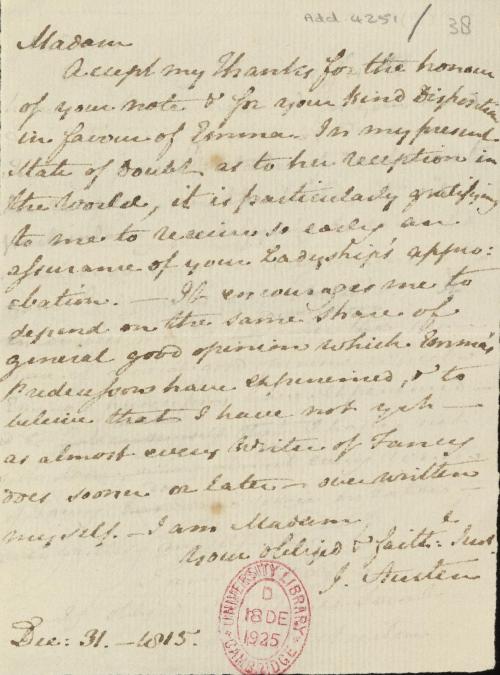 Add. 4251 / 38
Madam
Accept my Thanks for the honour
of your note & for your kind Disposition
in favour of Emma. In my present
State of Doubt as to her reception in
the World, it is particularly gratifying
to me to receive so early an
assurance of your Ladyship's appro:
:bation. — It encourages me to
depend on the same share of
general good opinion which Emma's
Predecessors have experienced, & to
believe that I have not yet —
as almost every Writer of Fancy
does sooner or later — overwritten
myself. — I am Madam
Your obliged & faith: Servt
J. Austen
UNIVERSITY LIBRARY
D
18 DE
1925
CAMBRIDGE
Dec: 31. — 1815.